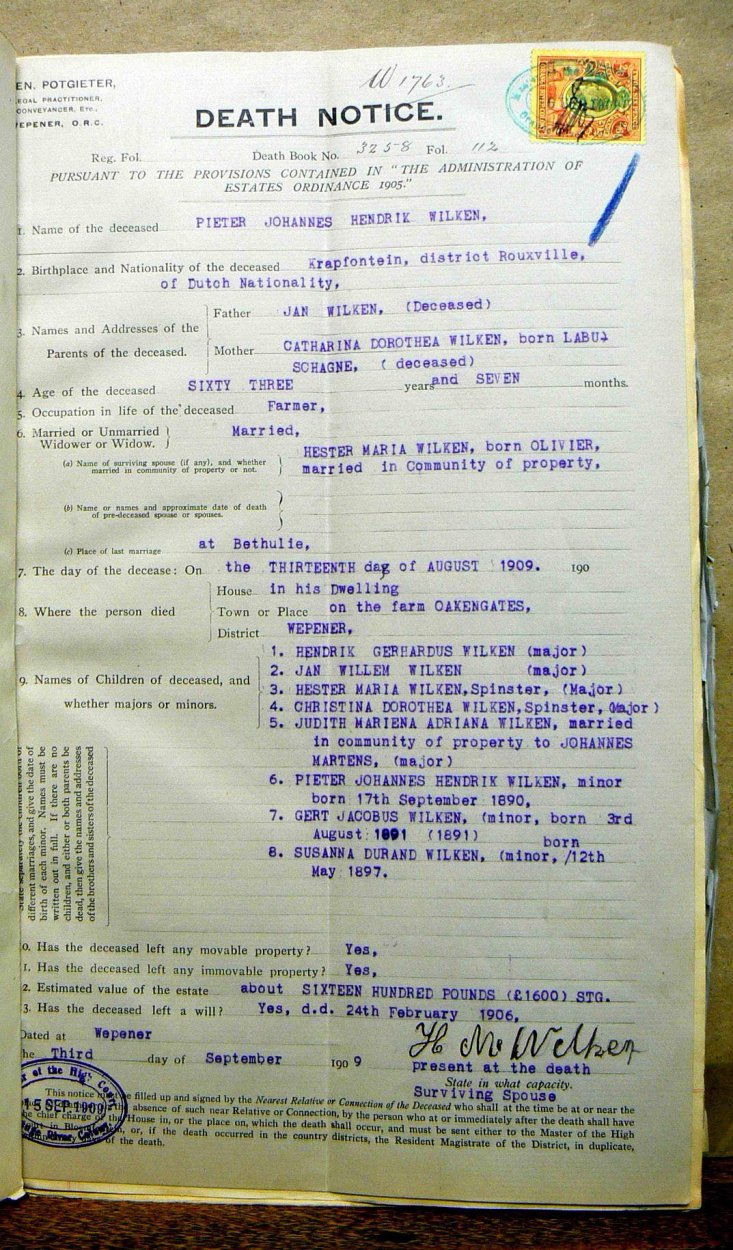 EN. POTGIETER,
EGAL PRACTITIONER,
CONVEYANCER, ETC.,
EPENER, O.R.C.
W 1763.
DEATH NOTICE.
Reg. Fol. Death Book No. 3258 Fol. 112
PURSUANT TO THE PROVISIONS CONTAINED IN "THE ADMINISTRATION OF
ESTATES ORDINANCE 1905."
1. Name of the deceased PIETER JOHANNES HENDRIK WILKEN,
2. Birthplace and Nationality of the deceased Krapfontein, district Rouxville,
of Dutch Nationality,
3. Names and Addresses of the Parents of the deceased.
Father JAN WILKEN, (Deceased)
Mother CATHARINA DOROTHEA WILKEN, born LABU-
SCHAGNE, ( deceased)
4. Age of the deceased SIXTY THREE years and SEVEN months.
5. Occupation in life of the deceased Farmer,
6. Married or Unmarried Married,
Widower or Widow.
HESTER MARIA WILKEN, born OLIVIER,
(a) Name of surviving spouse (if any), and whether
married in community of property or not. married in Community of property,
(b) Name or names and approximate date of death
of pre-deceased spouse or spouses.
(c) Place of last marriage at Bethulie,
7. The day of the decease: On the THIRTEENTH day of AUGUST 1909. 190
8. Where the person died
House in his Dwelling
Town or Place on the farm OAKENGATES,
District WEPENER,
9. Names of Children of deceased, and
whether majors or minors.
1. HENDRIK GERHARDUS WILKEN (major)
2. JAN WILLEM WILKEN (major)
3. HESTER MARIA WILKEN,Spinster, (Major)
4. CHRISTINA DOROTHEA WILKEN,Spinster, (Major)
5. JUDITH MARIENA ADRIANA WILKEN, married
in community of property to JOHANNES
MARTENS, (major)
6. PIETER JOHANNES HENDRIK WILKEN, minor
born 17th September 1890,
7. GERT JACOBUS WILKEN, (minor, born 3rd
August 1891 (1891)
8. SUSANNA DURAND WILKEN, (minor, /12th
born
May 1897.
different marriages, and give the date of
birth of each minor. Names must be
written out in full. If there are no
children, and either or both parents be
dead, then give the names and addresses
of the brothers and sisters of the deceased
0. Has the deceased left any movable property? Yes,
1. Has the deceased left any immovable property? Yes,
2. Estimated value of the estate about SIXTEEN HUNDRED POUNDS (£1600) STG.
3. Has the deceased left a will? Yes, d.d. 24th February 1906,
Dated at Wepener
H M Wilken
he Third day of September 190 9
present at the death
State in what capacity.
Surviving Spouse
of the High Court
15 SEP 1909
This notice be filled up and signed by the Nearest Relative or Connection of the Deceased who shall at the time be at or near the
the absence of such near Relative or Connection, by the person who at or immediately after the death shall have
the chief charge of the House in, or the place on, which the death shall occur, and must be sent either to the Master of the High
or, if the death occurred in the country districts, the Resident Magistrate of the District, in duplicate,
of the death.